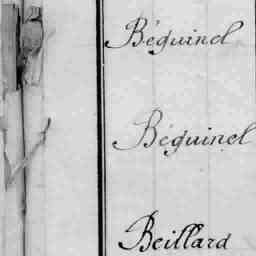 Béguinel
Béguinel
Beillard